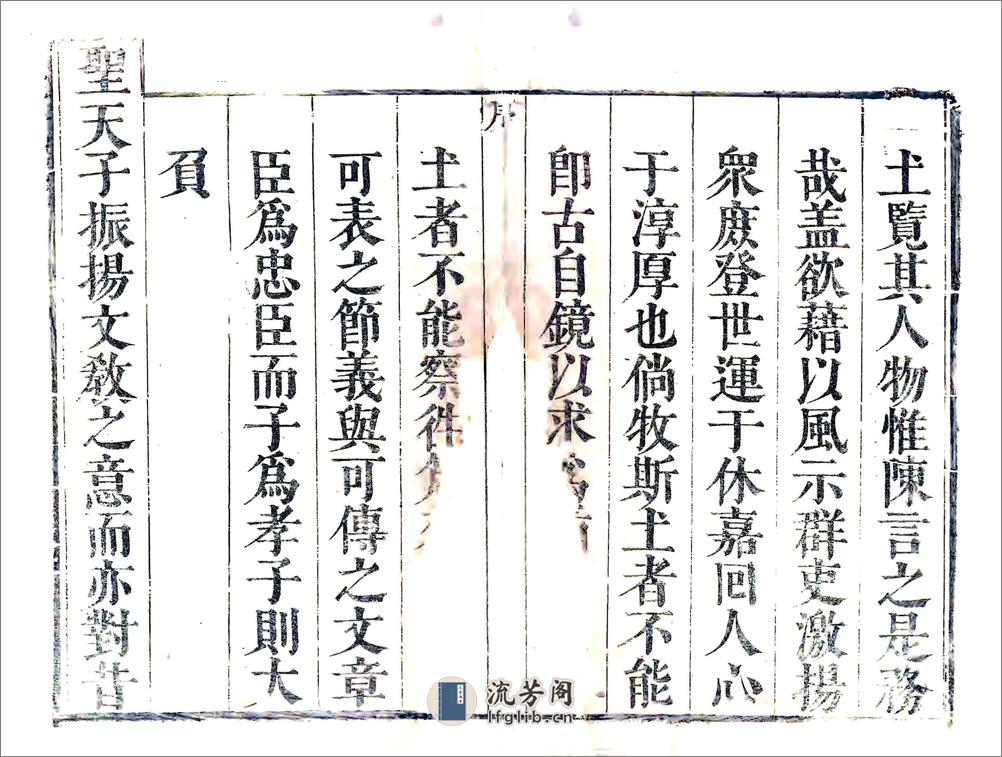 土覽其人物惟陳言之是務
哉盖欲藉以風示群吏激揚
衆庶登世運于休嘉囘人心
于淳厚也倘牧斯土者不能
卽古自鏡以求
序
土者不能察徃
可表之節義與可傳之文章
臣爲忠臣而子爲孝子則大
負
聖天子振揚文敎之意而亦對昔
流芳阁
lfglib.cn